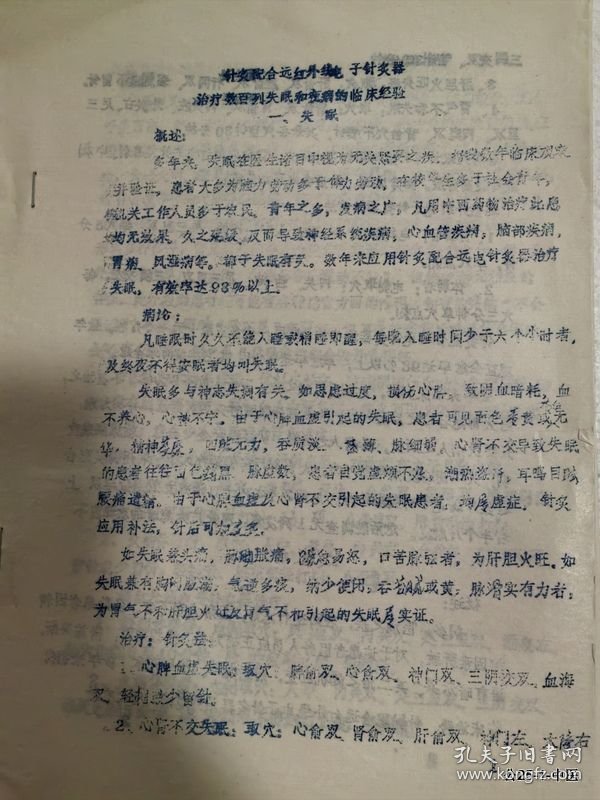 针灸配合远红外线电子针灸器
治疗数百列失眠和夜病的临床经验
一、失眠
概述：
多年来，失眠在医生诸目中视为无关紧要之疾，据我数年临床观来
并验证，患者大多为脑力劳动多于体力劳动，在校学生多于社会青年，
机关工作人员多于农民，青年之多，发病之广，凡用中西药物治疗此患
均无效果，久之延缓，反而导致神经系统疾病，心血管疾病，脑部疾病，
胃病、风湿病等。都于失眠有关。数年来应用针灸配合远电针灸器治疗
失眠，有效率达93％以上。
病论：
凡睡眠时久久不能入睡或稍睡即醒，每晚入睡时间少于六个小时者，
及终夜不得安眠者均叫失眠。
失眠多与神志失调有关。如思虑过度，损伤心脾，致阴血暗耗，血
不养心，心神不宁。由于心脾血虚引起的失眠，患者可见面色萎黄或无
华，精神，四肢无力，舌质淡、苔薄、脉细弱，心肾不交导致失眠
的患者往往面色，脉虚数，患者自觉虚烦不寐，潮热盗汗，耳鸣目眩
腰痛遗精。由于心脾血虚及心肾不交引起的失眠患者，均属虚症。针灸
应用补法，针后可加多灸。
如失眠兼头痛，脉动胀痛，易怒，口苦脉弦者，为肝胆火旺。如
失眠兼有胸闷脘满，气逆多痰，纳少便闭，舌苔腻或黄，脉滑实有力者，
为胃气不和肝胆火旺及胃气不和引起的失眠属实证。
治疗：针灸法：
1、心脾血虚失眠：取穴：脾俞双、心俞双、神门双、三阴交双、血海
双、轻刺激少留针。
2、心肾不交失眠：取穴：心俞双、肾俞双、肝俞双、神门左、太陵右
孔夫子旧书网
www.kongfz.com